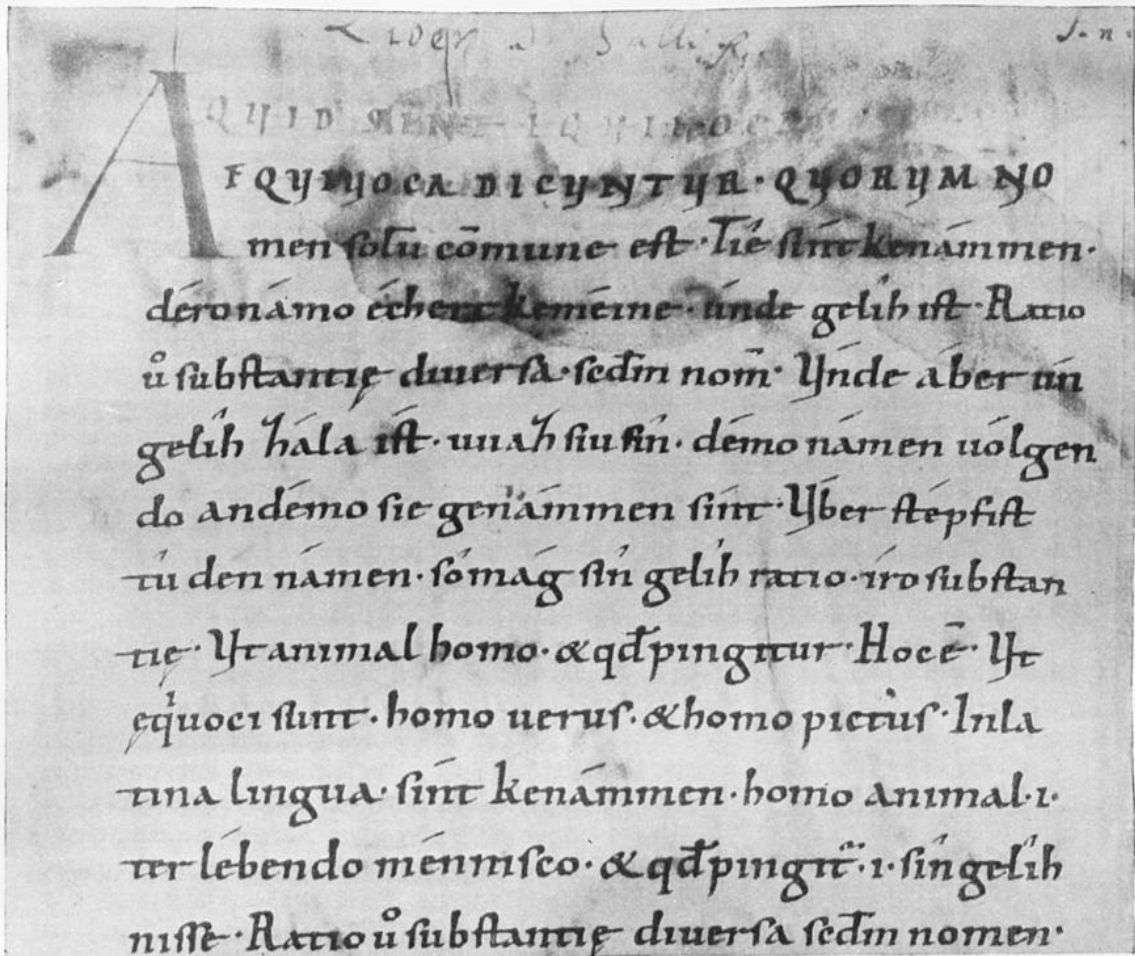 QUID SINT EQUIVOCA
AEQUIUOCA DICUNTUR · QUORUM NO
men solū cōmune est · Tíe sínt kenámmen ·
déro námo échert keméine · únde gelîh ist · Ratio
ů substantię diuersa · sec̄dm nom̄ · Unde áber ún
gelîh zála íst · uuáz siu sîn · démo námen uólgen
do andémo sie genámmen sínt · Uber stépfist
tû den námen · sô mág sîn gelîh ratio · íro substan
tię · Ut animal homo · & qd̄ pingitur · Hoc ē · Ut
ęquoci sunt · homo uerus · & homo pictus · In la
tina lingua · sínt kenámmen · homo animal · i ·
ter lébendo ménnisco · & qd̄ pingit̃ · i · sîn gelîh
nisse · Ratio ů substantię diuersa sec̄dm nomen ·